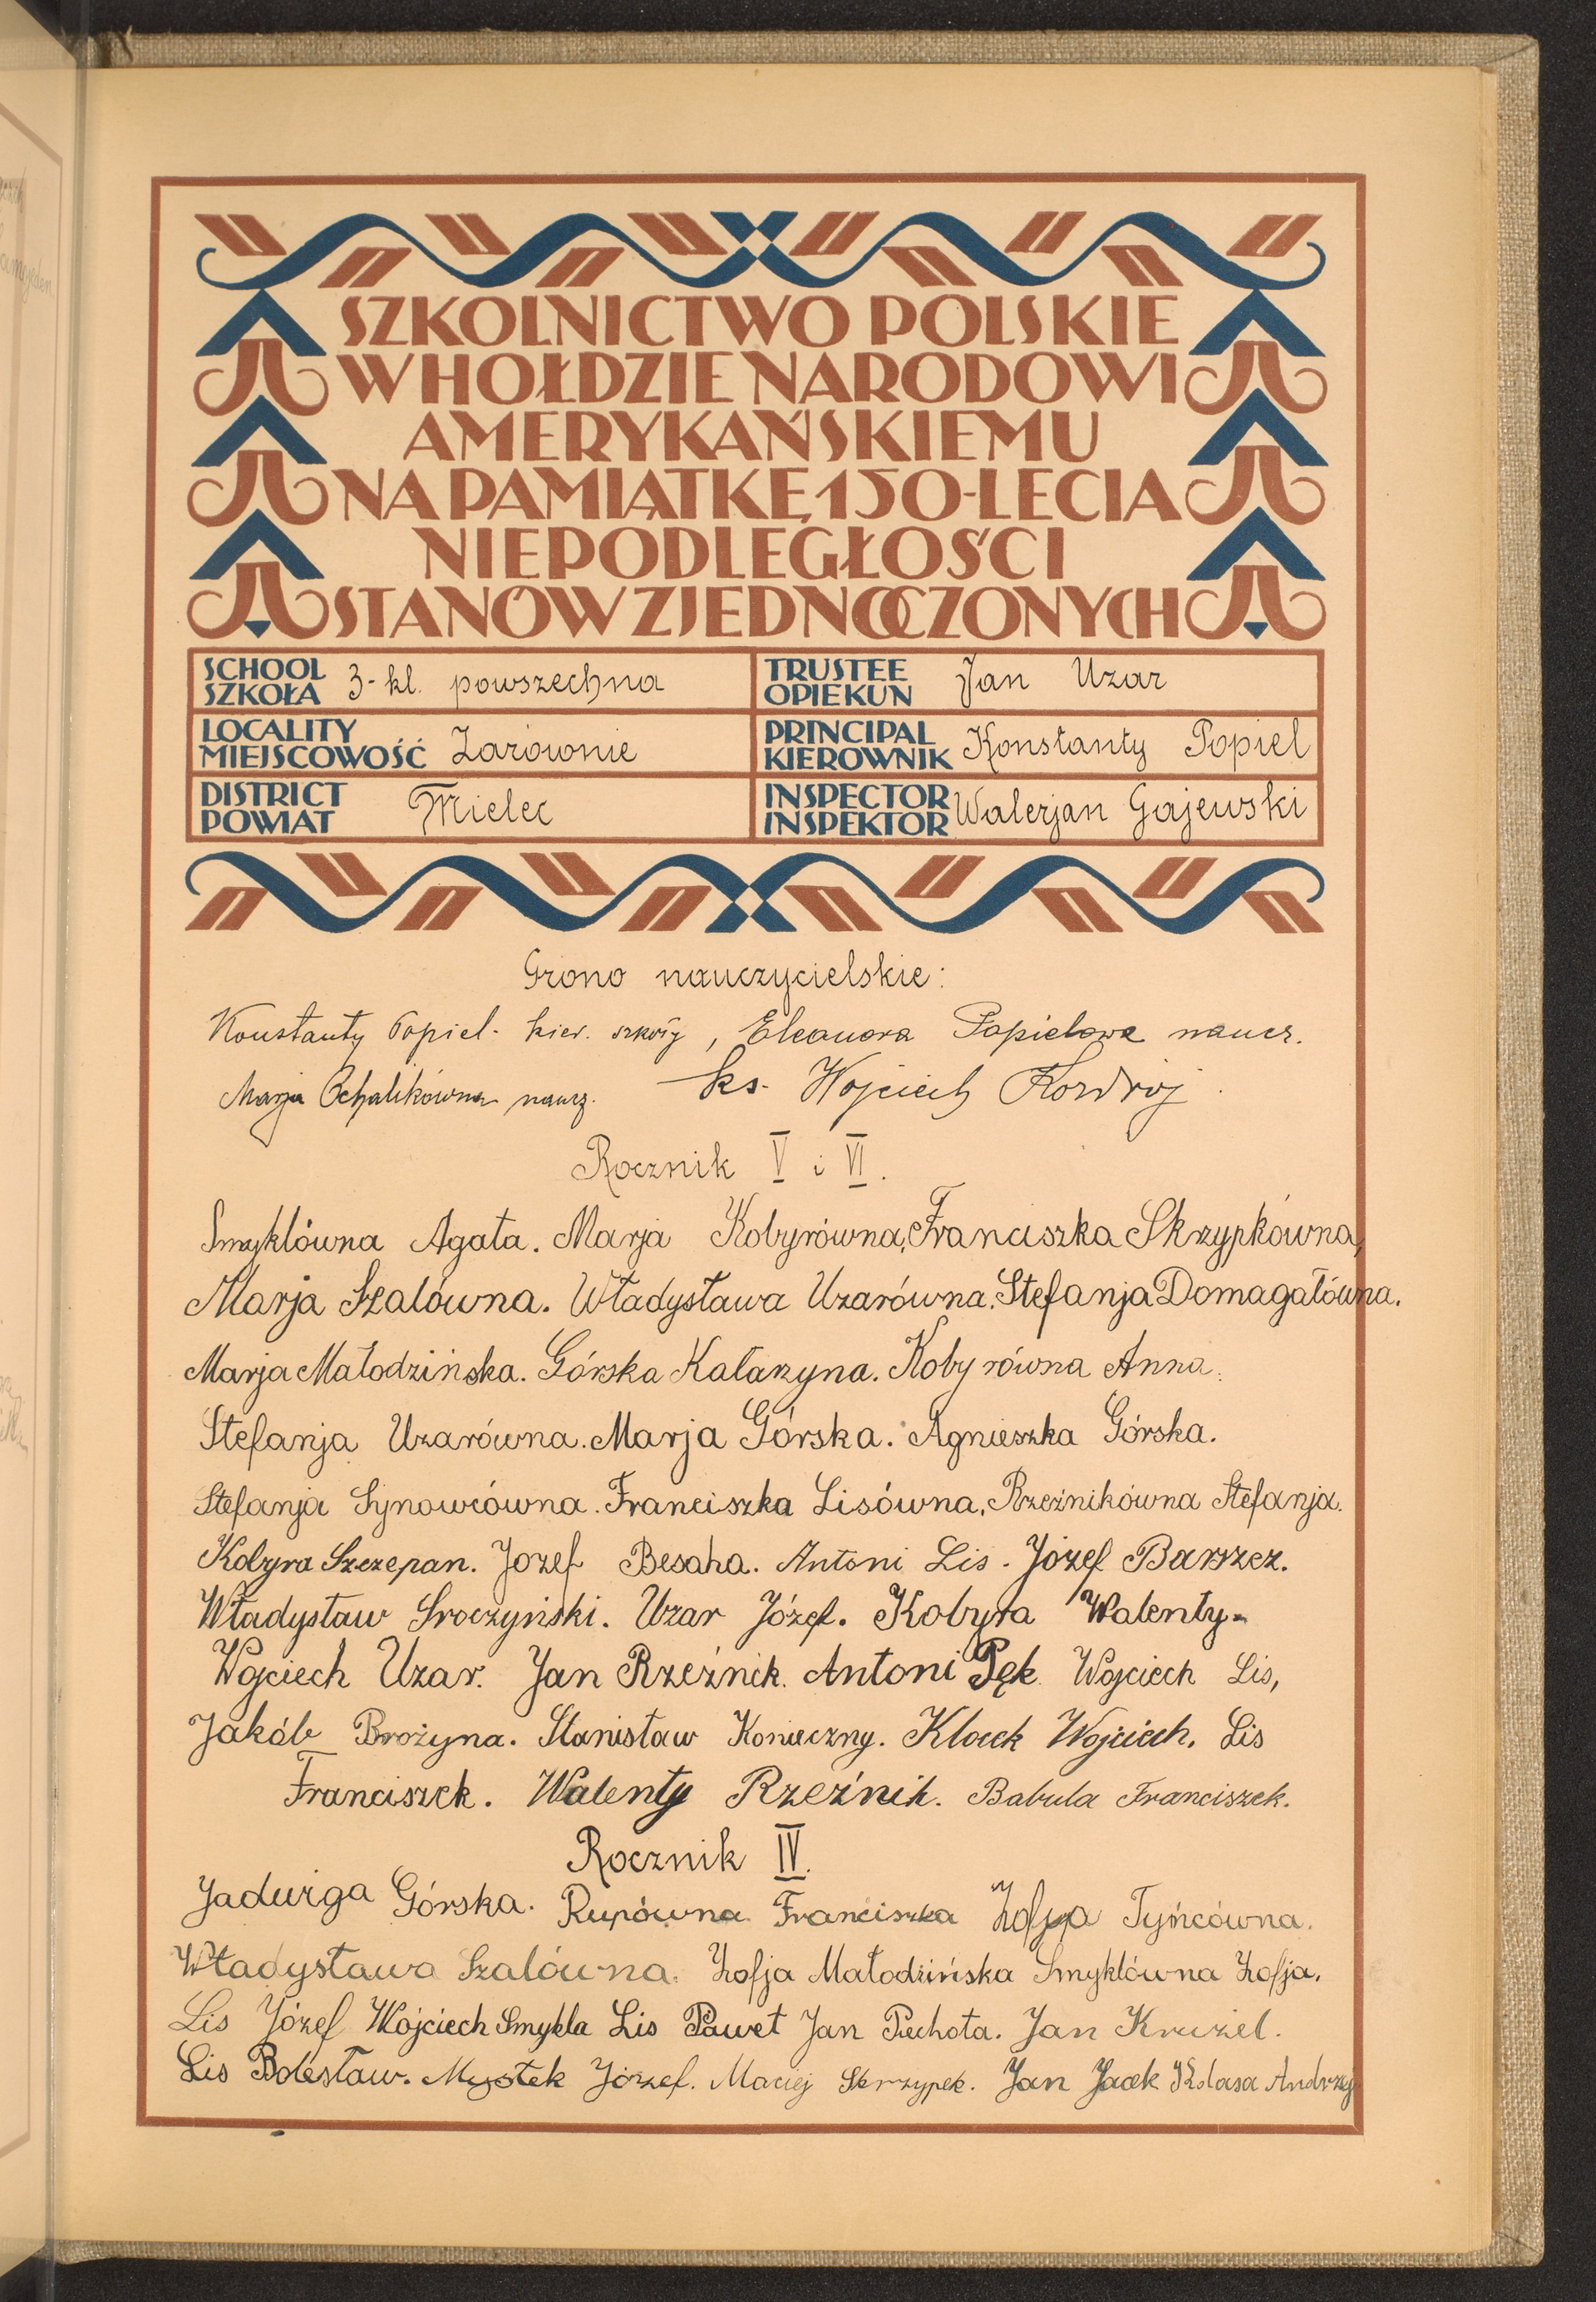 SZKOLNICTWO POLSKIE
W HOŁDZIE NARODOWI
AMERYKAŃSKIEMU
NA PAMIĄTKĘ 150-LECIA
NIEPODLEGŁOŚCI
STANÓW ZJEDNOCZONYCH
SCHOOL
SZKOŁA 3-kl. powszechna
TRUSTEE
OPIEKUN Jan Uzar
LOCALITY
MIEJSCOWOŚĆ Zarównie
PRINCIPAL
KIEROWNIK Konstanty Popiel
DISTRICT
POWIAT Mielec
INSPECTOR
INSPEKTOR Walerjan Gajewski
Grono nauczycielskie:
Konstanty Popiel - kier. szkoły, Eleanora Popielowa naucz.
Marja Ochalikówna naucz. ks. Wojciech
Rocznik V i VI.
Smyklówna Agata. Marja Kobyrówna, Franciszka Skrzypkówna,
Marja Szalówna. Władysława Uzarówna. Stefanja Domagałówna.
Marja Małodzińska. Górska Katarzyna. Kobyrówna Anna.
Stefanja Uzarówna. Marja Górska. Agnieszka Górska.
Stefanja Synowcówna. Franciszka Lisówna, Rzeźnikówna Stefanja.
Kobyra Szczepan. Jozef Besaha. Antoni Lis. Józef Barszcz.
Władysław Sroczyński. Uzar Józef. Kobyra Walenty.
Wojciech Uzar. Jan Rzeźnik. Antoni Pęk. Wojciech Lis,
Jakób Brożyna. Stanisław Konieczny. Klocek Wojciech. Lis
Franciszek. Walenty Rzeźnik. Babula Franciszek.
Rocznik IV.
Jadwiga Górska. Rupówna Franciszka Zofja Tyńcówna.
Władysława Szalówna. Zofja Małodzińska Smyklówna Zofja.
Lis Józef Wojciech Smykla Lis Paweł Jan Piechota. Jan Krużel.
Lis Bolesław. Józef. Maciej Skrzypek. Jan Jacek Kolasa Andrzej